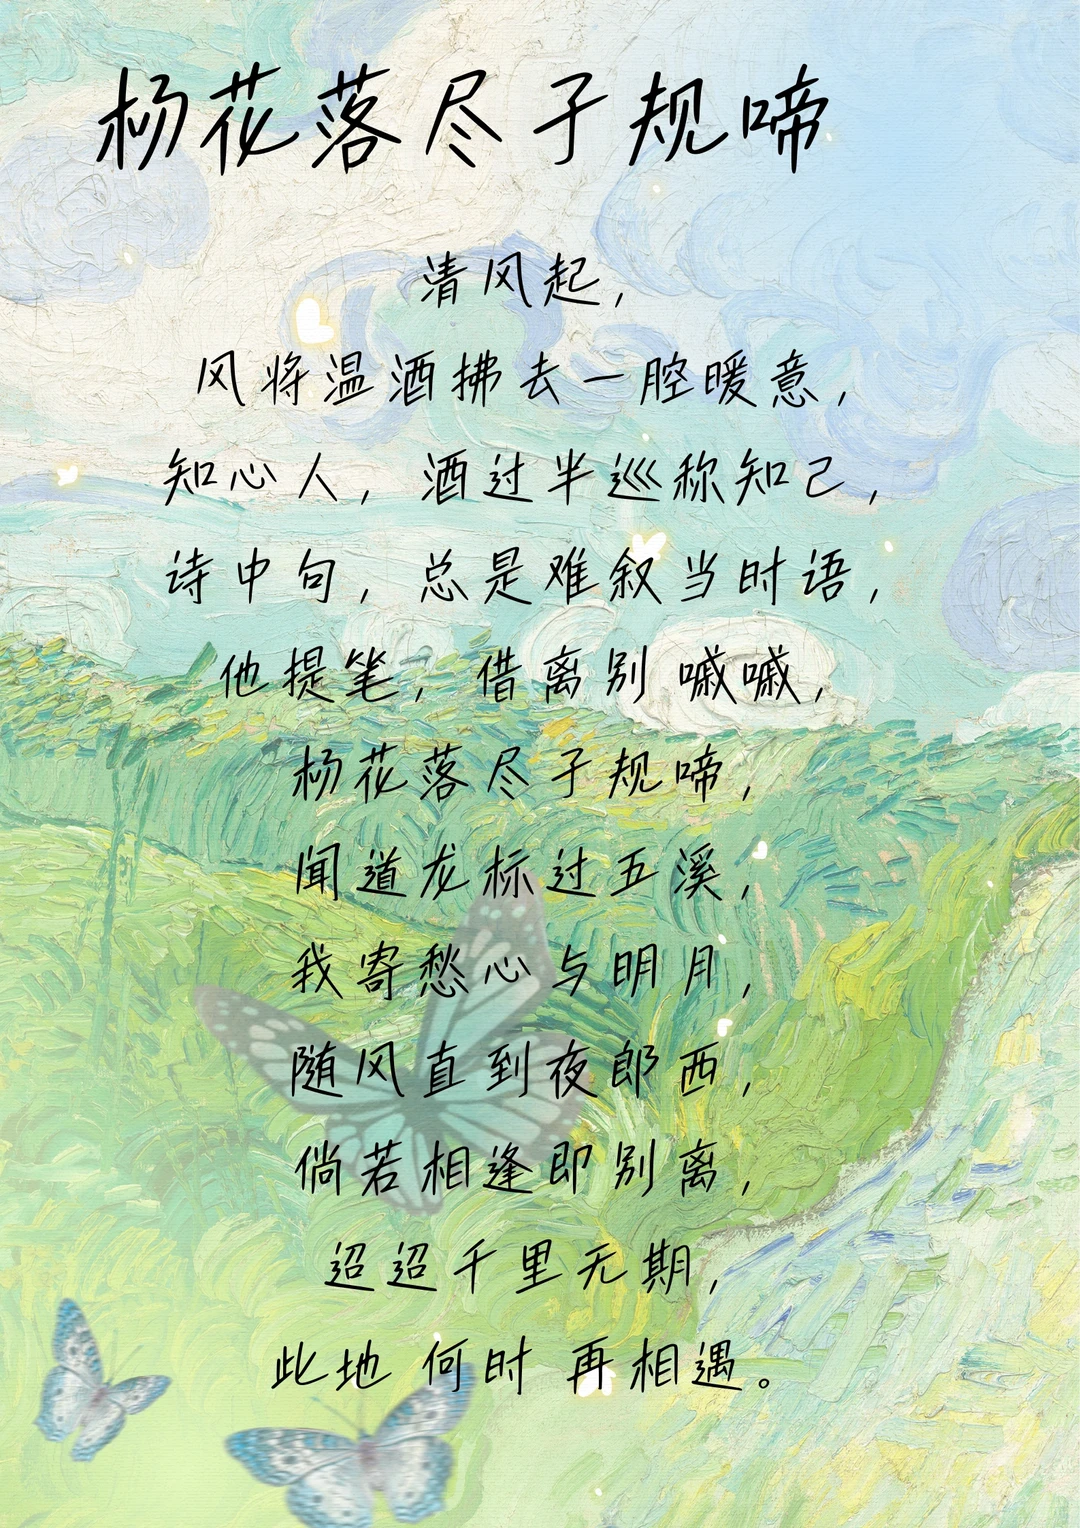 杨花落尽子规啼
清风起，
风将温酒拂去一腔暖意，
知心人，酒过半巡称知己，
诗中句，总是难叙当时语，
他提笔，借离别 嘁嘁，
杨花落尽子规啼，
闻道龙标过五溪，
我寄愁心与明月，
随风直到夜郎西，
倘若相逢即别离，
迢迢千里无期，
此地 何时 再相遇。